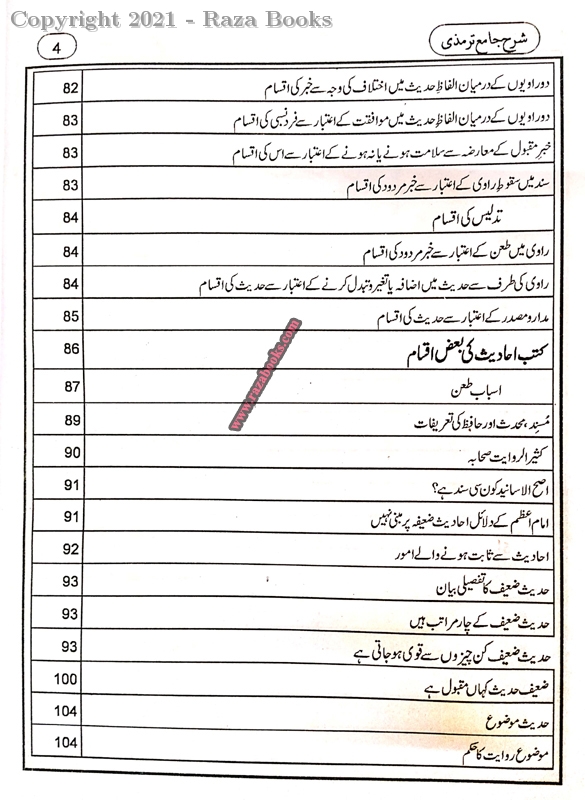 Copyright 2021 - Raza Books
شرح جامع ترمذی
4
دو راویوں کے درمیان الفاظ حدیث میں اختلاف کی وجہ سے خبر کی اقسام 82
دو راویوں کے درمیان الفاظ حدیث میں موافقت کے اعتبار سے فرد نسبی کی اقسام 83
خبرِ مقبول کے معارضہ سے سلامت ہونے یا نہ ہونے کے اعتبار سے اس کی اقسام 83
سند میں سقوطِ راوی کے اعتبار سے خبر مردود کی اقسام 83
تدلیس کی اقسام 84
راوی میں طعن کے اعتبار سے خبر مردود کی اقسام 84
راوی کی طرف سے حدیث میں اضافہ یا تغیر و تبدل کرنے کے اعتبار سے حدیث کی اقسام 84
مدار و مصدر کے اعتبار سے حدیث کی اقسام 85
کتب احادیث کی بعض اقسام 86
اسباب طعن 87
مُسنِد، محدث اور حافظ کی تعریفات 89
کثیر الروایت صحابہ 90
اصح الاسانید کون سی سند ہے؟ 91
امام اعظم کے دلائل احادیث ضعیفہ پر مبنی نہیں 91
احادیث سے ثابت ہونے والے امور 92
حدیث ضعیف کا تفصیلی بیان 93
حدیث ضعیف کے چار مراتب ہیں 93
حدیث ضعیف کن چیزوں سے قوی ہو جاتی ہے 93
ضعیف حدیث کہاں مقبول ہے 100
حدیث موضوع 104
موضوع روایت کا حکم 104
www.razabooks.com